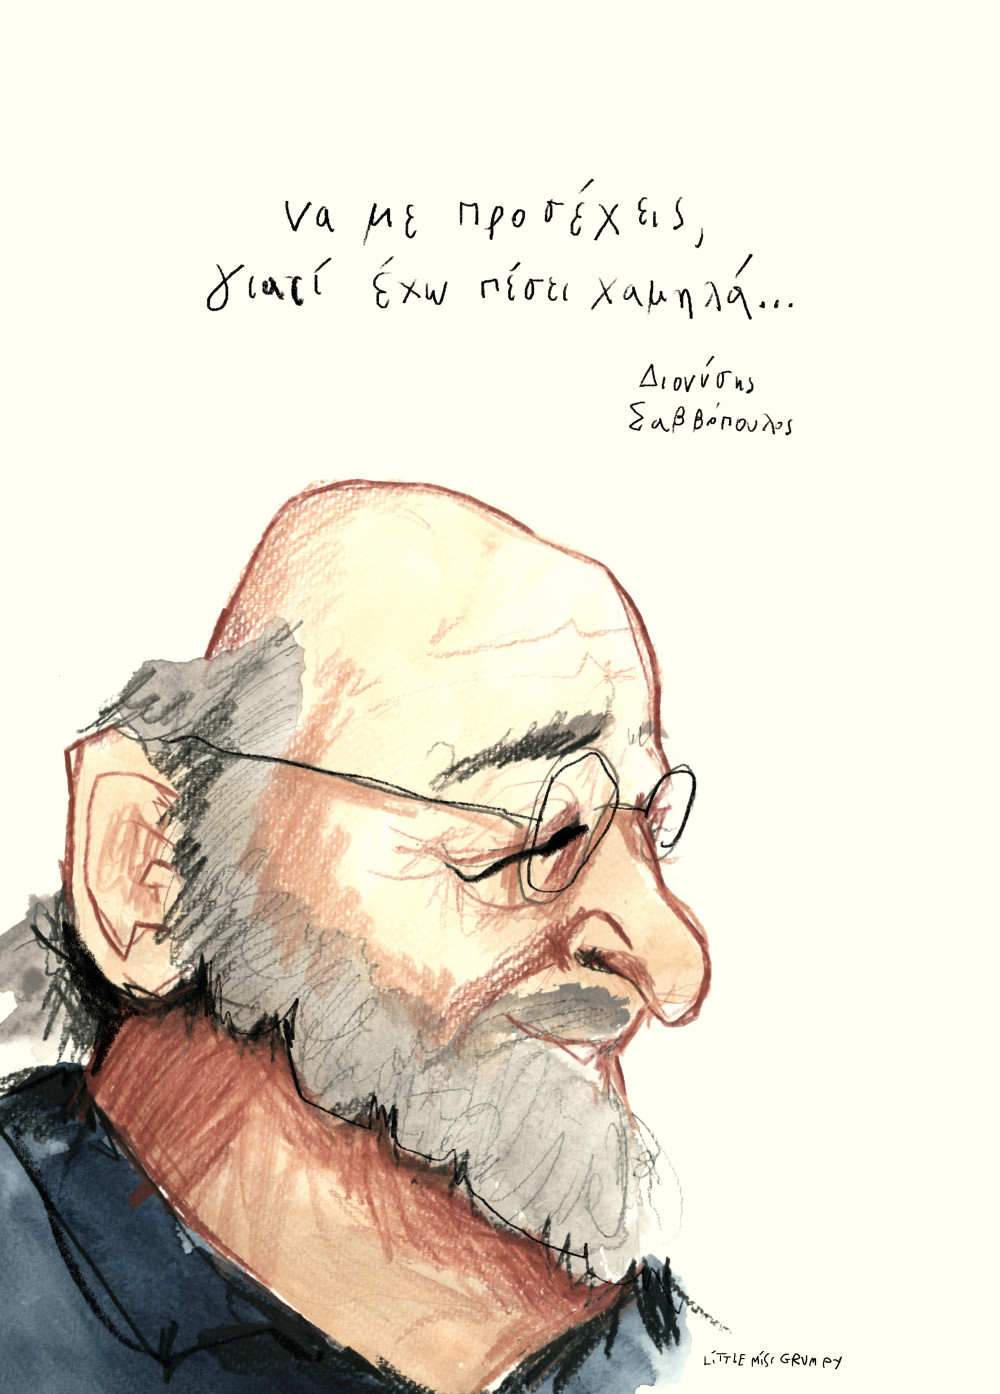 να με προσέχεις,
γιατί έχω πέσει χαμηλά...
Διονύσης
Σαββόπουλος
LiTTLE MiSS GRUMPY